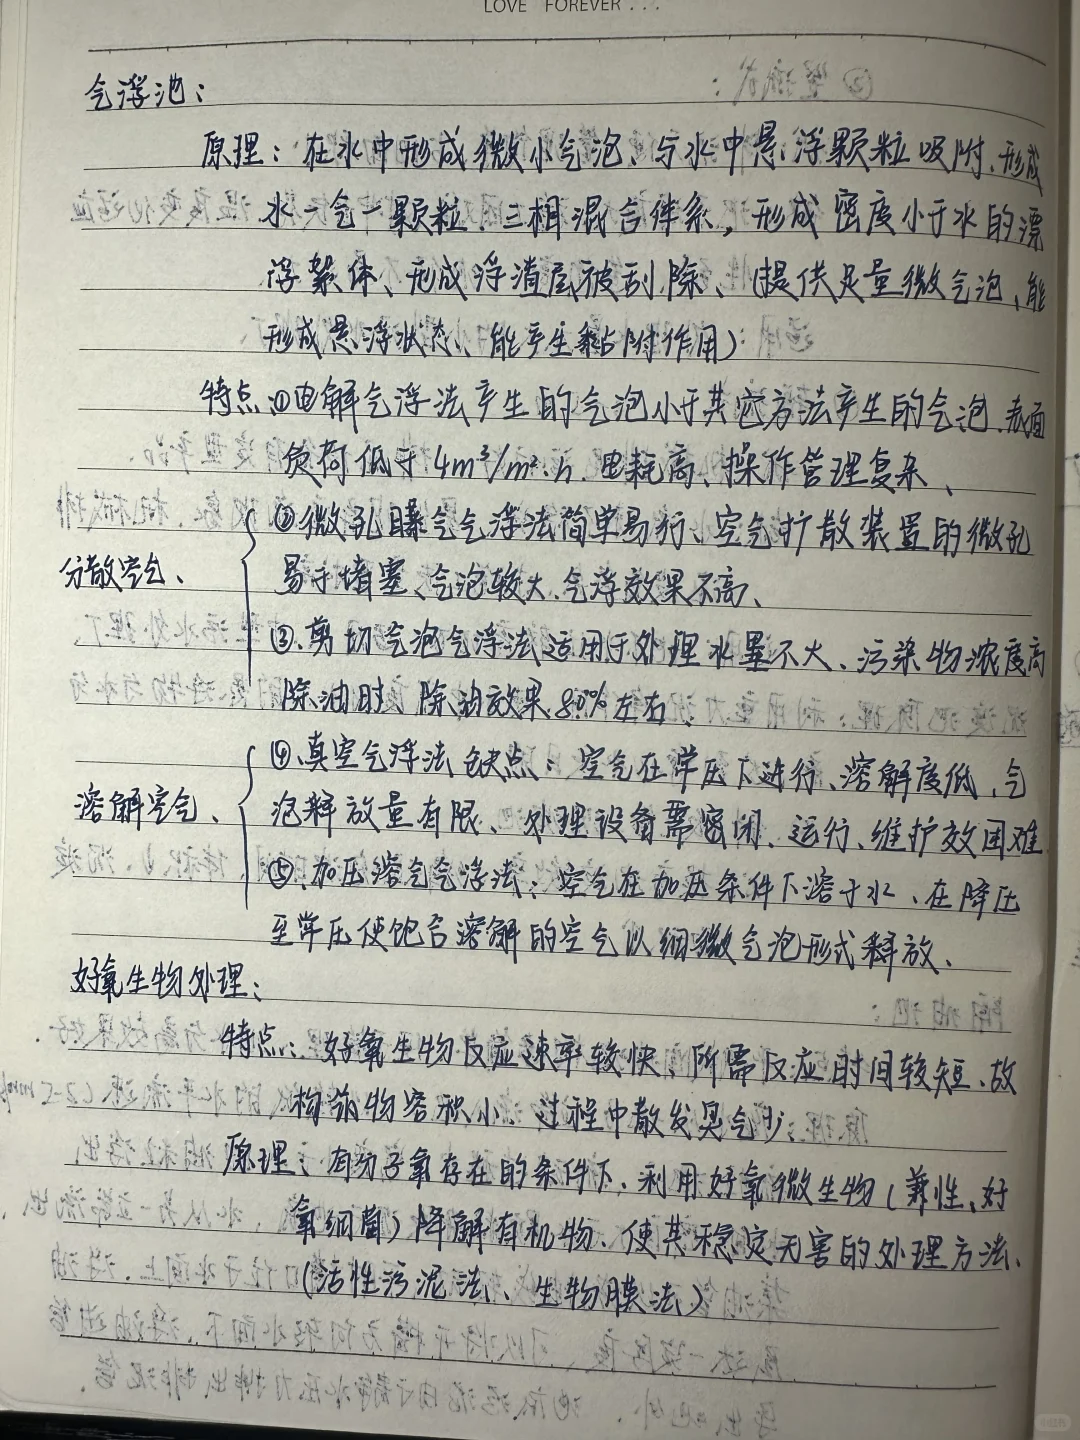 LOVE FOREVER...
气浮池：
原理：在水中形成微小气泡、与水中悬浮颗粒吸附、形成
水一气一颗粒、三相混合体系，形成密度小于水的漂
浮絮体、形成浮渣层被刮除、（提供足量微气泡、能
形成悬浮状态、能产生黏附作用）
特点①电解气浮法产生的气泡小于其它方法产生的气泡、表面
负荷低于4m³/m²·h、电耗高、操作管理复杂、
②微孔曝气气浮法简单易行、空气扩散装置的微孔
分散空气、
易于堵塞、气泡较大、气浮效果不高、
③、剪切气泡气浮法适用于处理水量不大、污染物浓度高
除油时、除油效果80%左右
④、真空气浮法缺点：空气在常压下进行、溶解度低、气
溶解空气、
泡释放量有限、处理设备需密闭、运行、维护效困难
⑤、加压溶气气浮法：空气在加压条件下溶于水、在降压
至常压使饱合溶解的空气以细微气泡形式释放、
好氧生物处理：
特点：好氧生物反应速率较快、所需反应时间较短、故
构筑物容积小、过程中散发臭气少
原理：有分子氧存在的条件下、利用好氧微生物（兼性、好
氧细菌）降解有机物、使其稳定无害的处理方法、
（活性污泥法、生物膜法）